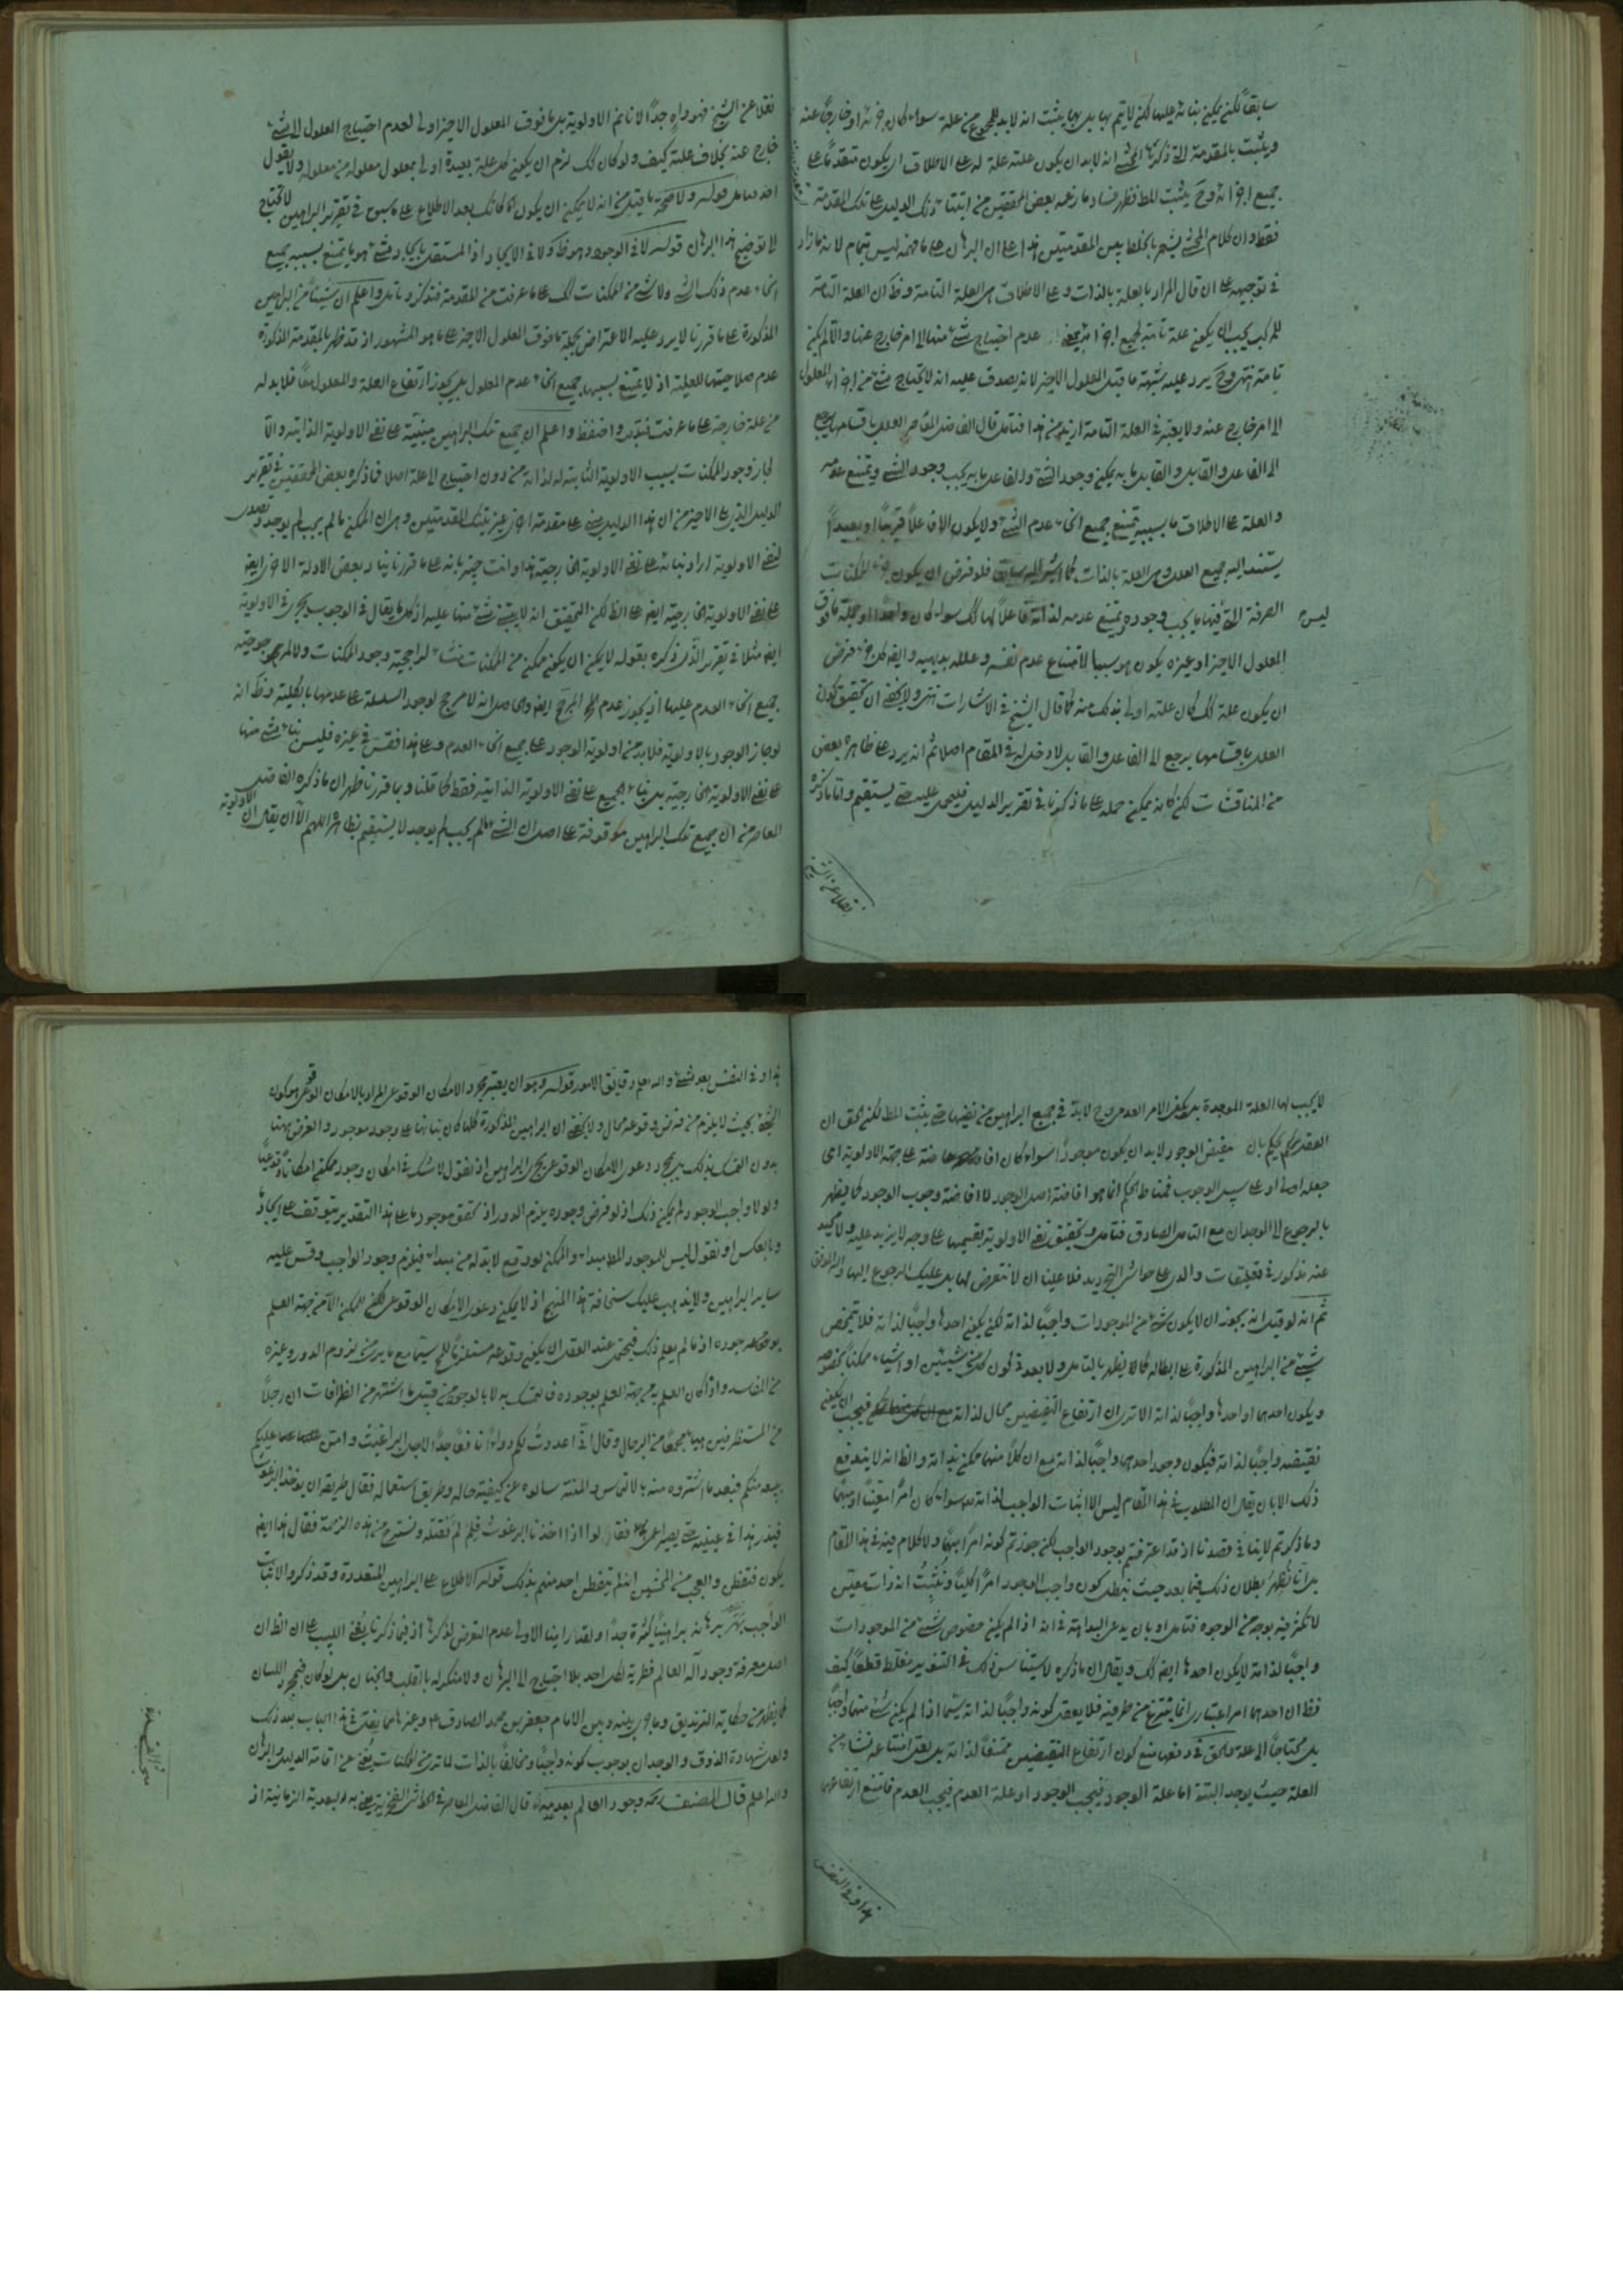 سابقاً لكن يمكن بناؤه عليها لكن لا يتم بها بل بما يثبت انه لابد للمجموع من علة سواء كان جزئه او خارجاً عنه
ويثبت بالمقدمة التى ذكرها المحشى انه لابد ان يكون علته علة له على الاطلاق اى يكون متقدماً على
جميع اجزائه وح يثبت المط فظهر فساد ما زعمه بعض المحققين من ابتناء ذلك الدليل على تلك المقدمة
فقط وان كلام المحشى يشعر بالخلط بين المقدمتين هذا على ان البرهان على ما فهمه ليس بتمام لانه ما زاد
فى توجيهه على ان قال المراد بالعلة بالذات وعلى الاطلاق هى العلة التامة وظ ان العلة التامة
للمركب يجب ان يكون علة تامة لجميع اجزائه عدم احتياج شئ منها الى امر خارج عنها والا لم يكن
تامة انتهى وح يرد عليه شبهة ما قبل المعلول الاخير لانه يصدق عليه انه لا يحتاج شئ من اجزاء المعلول
الى امر خارج عنه ولا يعتبر فى العلة التامة ازيد من هذا فتامل قال الفاضل المعاصر العلل باقسامها يرجع
الى الفاعل والقابل والقابل ما به يمكن وجود الشئ والفاعل ما به يجب وجود الشئ ويمتنع عدمه
والعلة على الاطلاق ما بسببه يمتنع جميع انحاء عدم الشئ ولا يكون الا فاعلاً قريباً او بعيداً
يستند اليه جميع العلل وهى العلة بالذات كما اشير اليه سابقا فلو فرض ان يكون جزء للممكنات
الصرفة التى فيها ما يجب وجوده ويمتنع عدمه لذاته فاعلاً لها لك سواء كان واحداً او جملة ما فوق
ليس
المعلول الاخير او غيره يكون هو سببا لامتناع عدم نفسه وعلله بديهية وايضا كل جزء فرض
ان يكون علة لك كان علته اولى بذلك منه كما قال الشيخ فى الاشارات انتهى ولا يخفى ان تحقيق كون
العلل باقسامها يرجع الى الفاعل والقابل لا دخل له فى المقام اصلا ثم انه يرد على ظاهره بعض
من المناقشات لكن كانه يمكن حمله على ما ذكرنا فى تقرير الدليل فليحمل عليه حتى يستقيم واما ما ذكره
نقلا عن الشيخ
نقلا عن الشيخ فهو واهٍ جداً لانا نمنع الاولوية بل ما فوق المعلول الاخير اولى لعدم احتياج المعلول الى شئ
خارج عنه بخلاف علته كيف ولو كان لك لزم ان يكون كل علة بعيدة اولى بمعلول معلوله من معلوله ولا يقول
قوله ولا صحة ما قيل من انه لا يمكن ان يكون كانك بعد الاطلاع على ما سبق فى تقرير البراهين لا تحتاج
الى توضيح هذا البرهان قوله لا فى الوجود وهو ظ ولا فى الايجاد اذ المستقل بايجاد شئ هو ما يمتنع بسببه جميع
انحاء عدم ذلك الشئ ولا شئ من الممكنات لك على ما عرفت من المقدمة فتذكر وتامل واعلم ان شيئاً من البراهين
المذكورة على ما قررنا لا يرد عليه الاعتراض بجملة ما فوق المعلول الاخير على ما هو المشهور اذ قد ظهر بالمقدمة المذكورة
عدم صلاحيتها للعلية اذ لا يمتنع بسببها جميع انحاء عدم المعلول بل يجوز ارتفاع العلة والمعلول معاً فلابد له
من علة خارجة على ما عرفت فتدبر واحفظ واعلم ان جميع تلك البراهين مبنية على نفى الاولوية الذاتية والا
لجاز وجود الممكنات بسبب الاولوية الثابتة له لذاته من دون احتياج الى علة اصلا فما ذكره بعض المحققين فى تقرير
الدليل الذى على الاخير من ان هذا الدليل مبنى على مقدمة اخرى غير تلك المقدمتين وهى ان الممكن ما لم يجب لم يوجد
لنفى الاولوية اراد بناءه على نفى الاولوية الخارجية هذا وانت خبير بانه على ما قررنا بناء بعض الادلة الاخرى ايضا
على نفى الاولوية الخارجية ايضا على الظ لكن التحقيق انه لا يبتنى شئ منها عليه اذ كل ما يقال فى الوجوب يجرى فى الاولوية
ايضا مثلا فى تقرير الذى ذكره بقوله لا يمكن ان يكون ممكن من الممكنات منشاء لراجحية وجود الممكنات ولا لمرجوحية
جميع انحاء العدم عليها اذ يجوز عدم المرجح ايضا والحاصل انه لا مرجح لوجود السلسلة على عدمها بالكلية وظ انه
لو جاز الوجود بالاولوية فلابد من اولوية الوجود على جميع انحاء العدم وعلى هذا فقس فى غيره فليس بناء شئ منها
على نفى الاولوية الخارجية بل بناء الجميع على نفى الاولوية الذاتية فقط كما قلنا وبما قررنا ظهر ان ما ذكره الفاضل
المعاصر من ان جميع تلك البراهين موقوفة على اصل ان الشئ ما لم يجب لم يوجد لا يستقيم بظاهره اللهم الا ان يقال ان الاولوية
لا يجب لها العلة الموجدة بل يكفى الامر العدمى وح لابد فى جميع البراهين من نفيها حتى يثبت المط لكن الحق ان
العقل يحكم بان مفيض الوجود لابد ان يكون موجوداً سواء كان افاضته على جهة الاولوية اى
جعله اولى او على سبيل الوجوب فمناط الحكم انما هو افاضة اصل الوجود لا افاضة وجوب الوجود كما يظهر
بالرجوع الى الوجدان مع التامل الصادق فتامل وتحقيق نفى الاولوية بقسميها على وجه لا يزيد عليه ولا محيد
عنه مذكور فى تعليقات والدى على حواشى التجريد فلا علينا ان لا نتعرض لها بل عليك الرجوع اليها والله الموفق
ثم انه لو قيل انه يجوز ان لا يكون شئ من الموجودات واجباً لذاته لكن يكون احدها واجباً لذاته فلا يتمحض
شئ من البراهين المذكورة على ابطاله كما لا يظهر بالتامل ولا بعد فى كون كل من شيئين او اشياء ممكناً بخصوصه
ويكون احدهما او احدها واجباً لذاته الا ترى ان ارتفاع النقيضين محال لذاته فيجب ان يكون
نقيضه واجباً لذاته فيكون وجود احدهما واجباً لذاته مع ان كلاً منهما ممكن بذاته والظ انه لا يندفع
ذلك الا بان يقال ان المطلوب فى هذا المقام ليس الا اثبات الواجب لذاته سواء كان امراً معيناً او مبهماً
وما ذكرتم لا ينافى قصدنا اذ قد اعترفتم بوجود الواجب لكن جوزتم كونه امراً مبهماً ولا كلام فيه فى هذا المقام
بل انا نظهر بطلان ذلك فيما بعد حيث نبطل كون واجب الوجود امراً كلياً ونثبت انه ذات معين
لا تكثر فيه بوجه من الوجوه فتامل او بان يدعى البداهة فى انه اذا لم يكن خصوص شئ من الموجودات
واجباً لذاته لا يكون احدها ايضا لك ويقال ان ما ذكره لاستيناس ذلك فى التنوير مغلط قطعاً كيف
وظ ان احدهما امر اعتبارى انما ينتزع من طرفيه فلا يعقل كونه واجباً لذاته سيما اذا لم يكن شئ منهما واجباً
بل محتاجاً الى علة والحق فى دفعها منع كون ارتفاع النقيضين ممتنعاً لذاته بل يعلل امتناعه من
العلة حيث يوجد البتة اما علة الوجود فيجب الوجود او علة العدم فيجب العدم فامتنع ارتفاعهما
هذا وفى النفس
هذا وفى النفس بعد شئ والله يعلم دقايق الامور قوله وهو ان يعتبر مجرد الامكان الوقوعى المراد بالامكان الوقوعى هو كون
الشئ بحيث لا يلزم من فرض وقوعه محال ولا يخفى ان البراهين المذكورة كلها كان بنائها على وجود موجود والغرض ههنا
بدون التمسك بذلك بل بمجرد دعوى الامكان الوقوعى يجرى البراهين اذ نقول لا شك فى امكان وجود ممكن امكاناً وقوعياً
ولولا واجب الوجود لم يمكن ذلك اذ لو فرض وجوده يلزم الدور اذ تحقق موجود ما على هذا التقدير يتوقف على ايجاد ما
وبالعكس او نقول ليس للموجود المط مبداء والممكن لو وقع لابد له من مبداء فيلزم وجود الواجب وقس عليه
ساير البراهين ولا يذهب عليك سخافة هذا المنهج اذ لا يمكن دعوى الامكان الوقوعى للممكن الا من جهة العلم
بوجوده اذ ما لم يعلم ذلك فيحتمل عند العقل ان يكون وقوعه مستلزماً للمح سيما مع ما يرى من لزوم الدور وغيره
من المفاسد واذا كان العلم به من جهة العلم بوجوده فالتمسك به لا بالوجود من قبيل ما اشتهر من الظرافات ان رجلاً
من المستظرفين هيأ مجمعاً من الرجال وقال انى اعددت لكم دواءً نافعاً جداً لاجل البراغيث وامنن عليكم
ببيعه منكم فبعد ما اشتروه منه بالالتماس والمنة سالوه عن كيفية حاله وطريق استعماله فقال طريقه ان يوخذ البرغوث
فيذر هذا فى عينيه حتى يصير اعمى فقالوا اذا اخذنا البرغوث فلم لم نقتله ونستريح من هذه الزحمة فقال هذا ايضا
يكون فتفطن والعجب من المحشين انه لم يتفطن احد منهم بذلك قوله الاطلاع على البراهين المتعددة وقد ذكروا لاثبات
الواجب بهر برهانه براهيناً كثيرة جداً ولقد راينا الاولى عدم التعرض لذكرها اذ فيما ذكرنا يغنى اللبيب على ان الظ ان
اصل معرفة وجود آله العالم فطرية لكل احد بلا احتياج الى البرهان ولا منكر له بالقلب والجنان بل لو كان فبمجرد اللسان
كما يظهر من حكاية الزنديق وما جرى بينه وبين الامام جعفر بن محمد الصادق ع وغيرها مما يغنى فى هذا الباب بعد ذلك
ولعل شهادة الذوق والوجدان بوجوب كونه واجباً ومخالفاً بالذات لما ترى من الممكنات يغنى عن اقامة الدليل والبرهان
والله اعلم قال المصنف ره وجود العالم بعد عدمه قال الفاضل المعاصر فى الحواشى الفخرية يعنى به البعدية الزمانية اذ